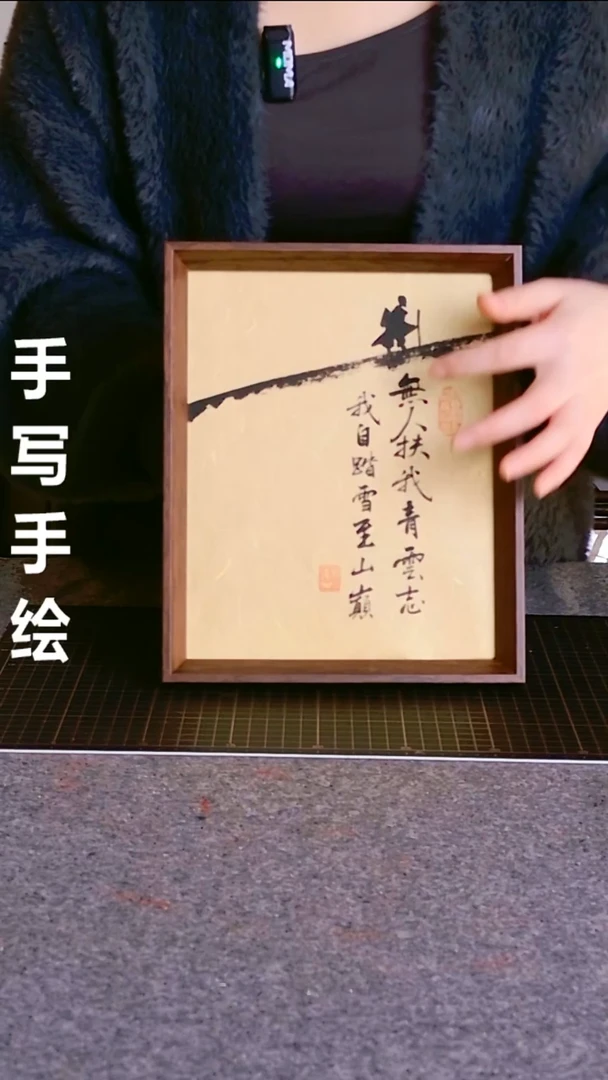 手写手绘
無人扶我青雲志
我自踏雪至山巔
MOMA